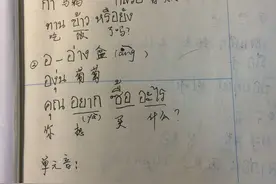 ทาน ข้าว หรือยัง
吃 饭
② อ - อ่าง 盆
องุ่น 葡萄
คุณ อยาก ซื้อ อะไร
你 想 买 什么?
单元音: